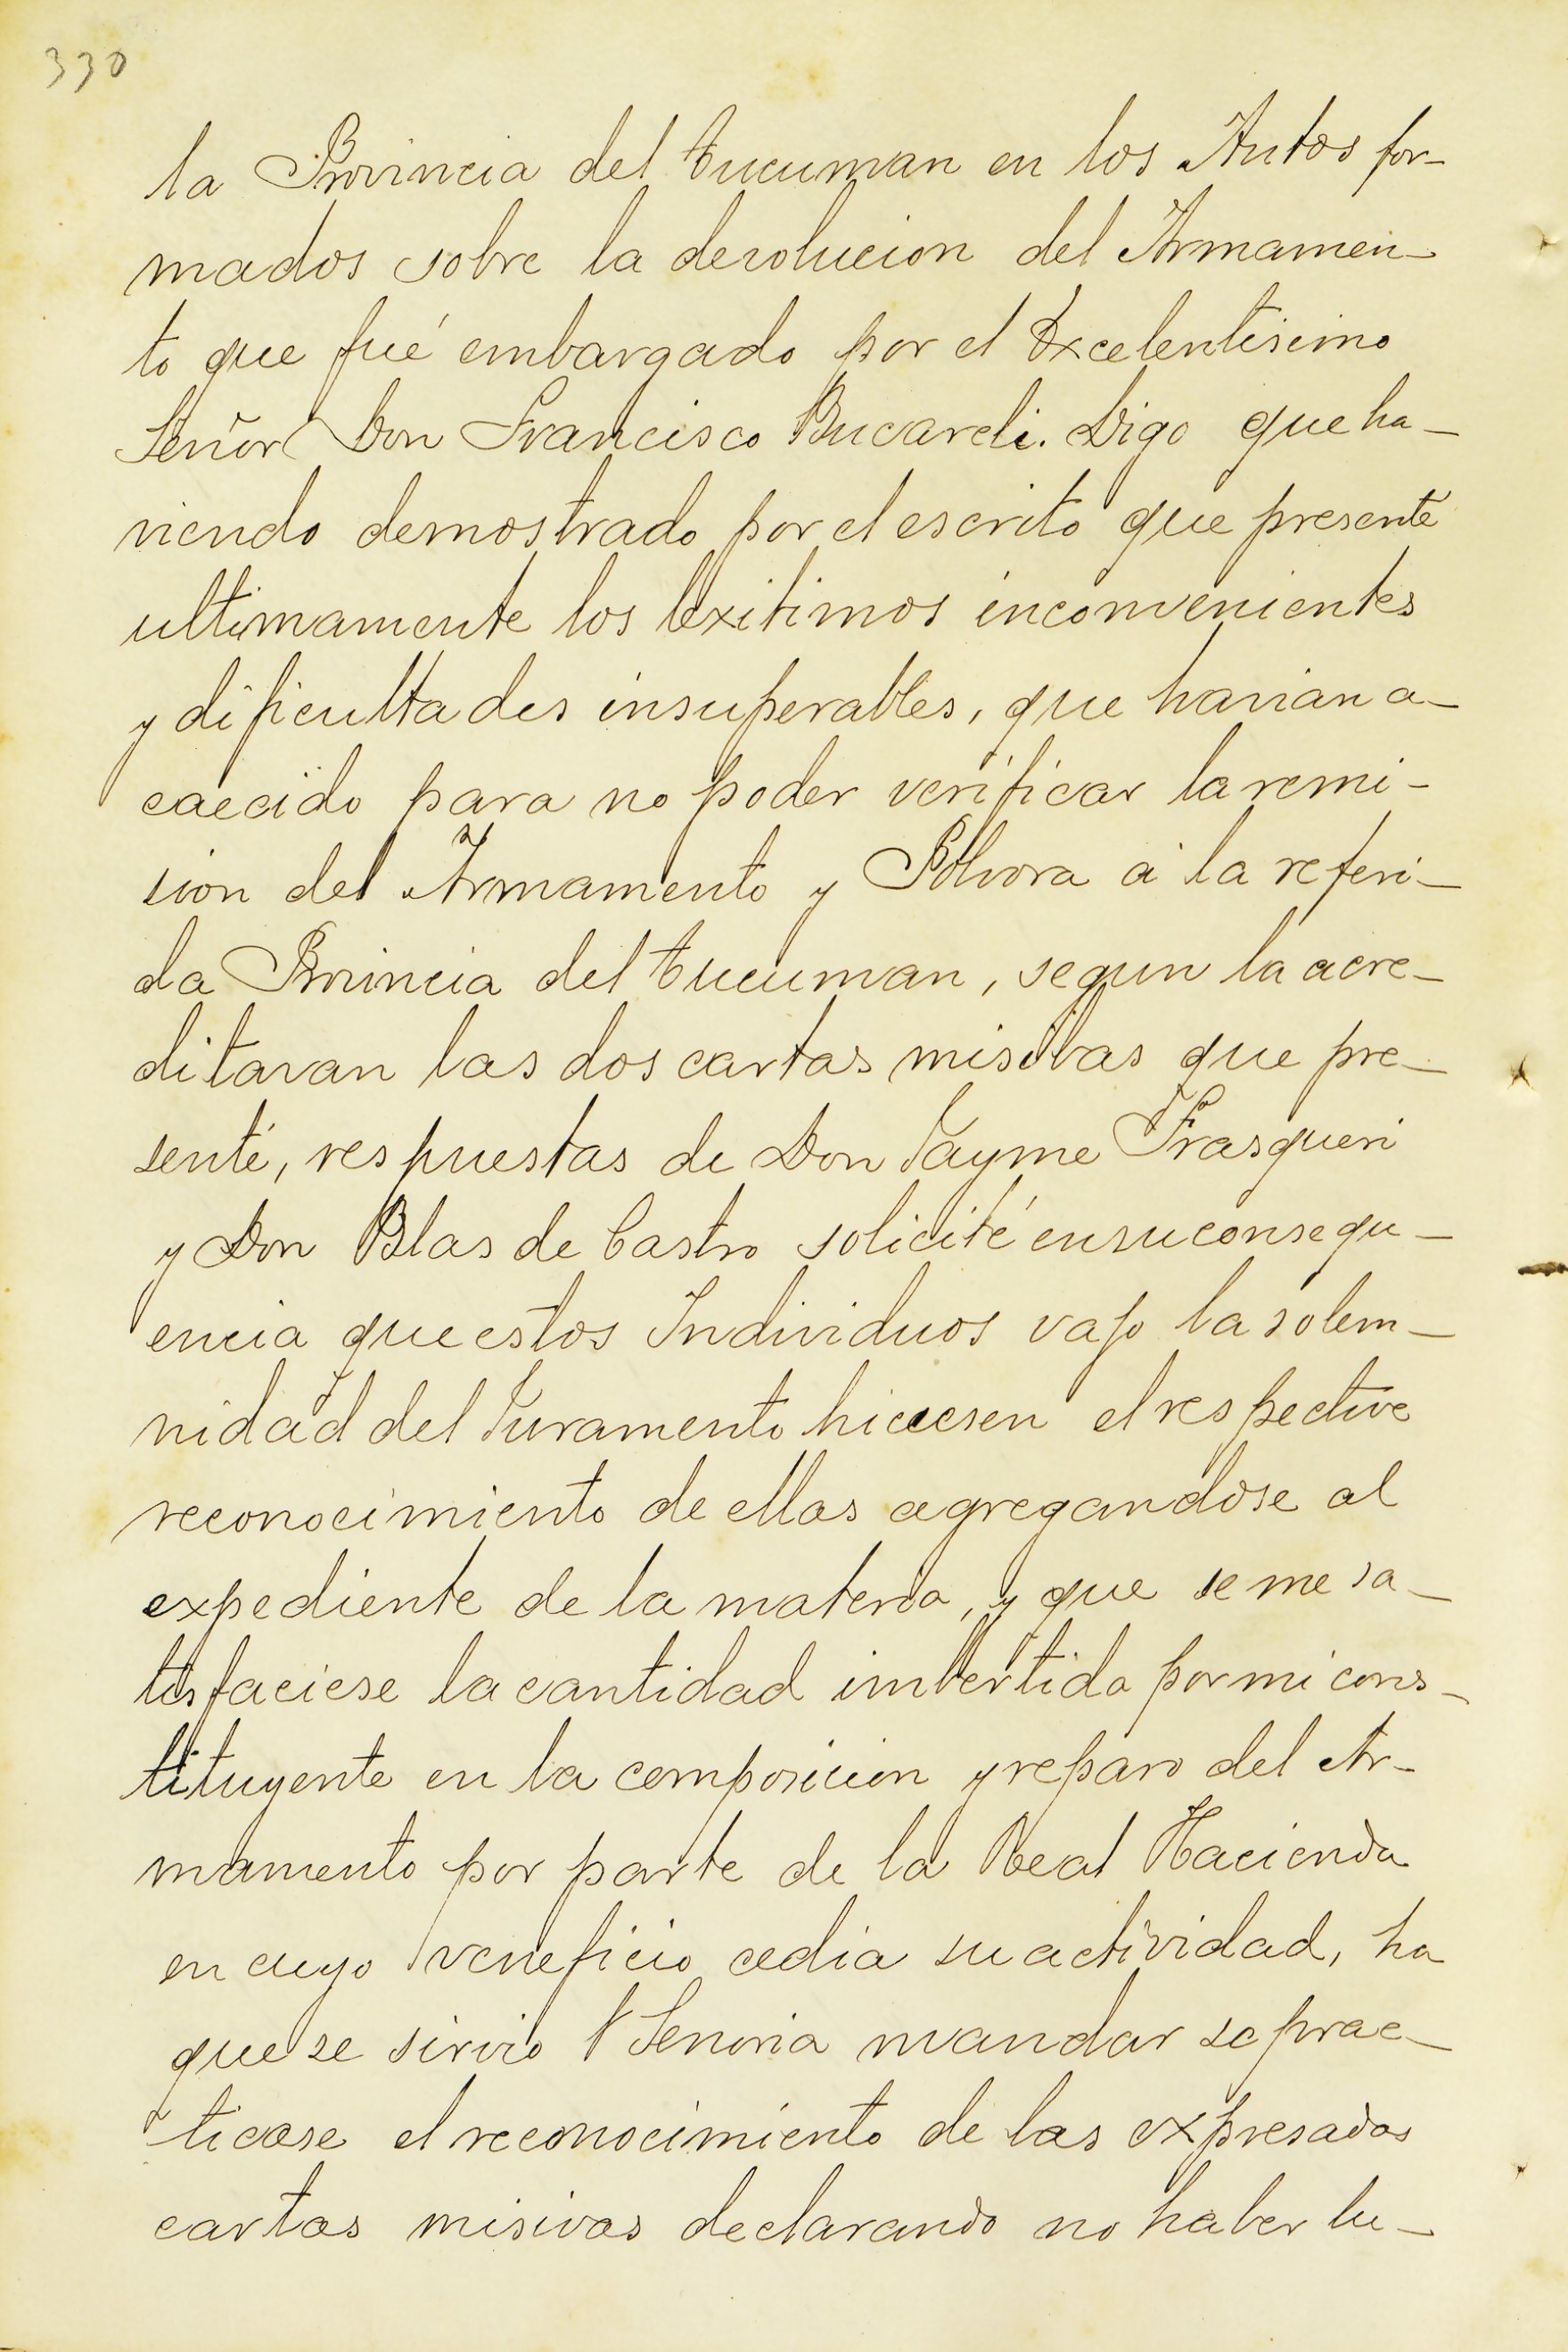 330
la Provincia del Tucuman en los Autos for-
mados sobre la devolucion del Armamen-
to que fué embargado por el Excelentisimo
Señor Don Francisco Bucareli. Digo que ha-
viendo demostrado por el escrito que presenté
ultimamente los lexitimos inconvenientes
y dificultades insuperables, que havian a-
caecido para no poder verificar la remi-
sion del Armamento y Polvora á la referi-
da Provincia del Tucuman, segun la acre-
ditavan las dos cartas misibas que pre-
senté, respuestas de Don Jayme Frasqueri
y Don Blas de Castro solicité en su consequ-
encia que estos Individuos vajo la solem-
nidad del Juramento hiciesen el respective
reconocimiento de ellas agregandose al
expediente de la materia, y que se me sa-
tisfaciese la cantidad imbertida por mi cons-
tituyente en la composicion y reparo del Ar-
mamento por parte de la Real Hacienda
en cuyo veneficio cedia su actividad, ha
que se sirvio V Senoria mandar se prac-
ticase el reconocimiento de las expresadas
cartas misivas declarando no haber lu-